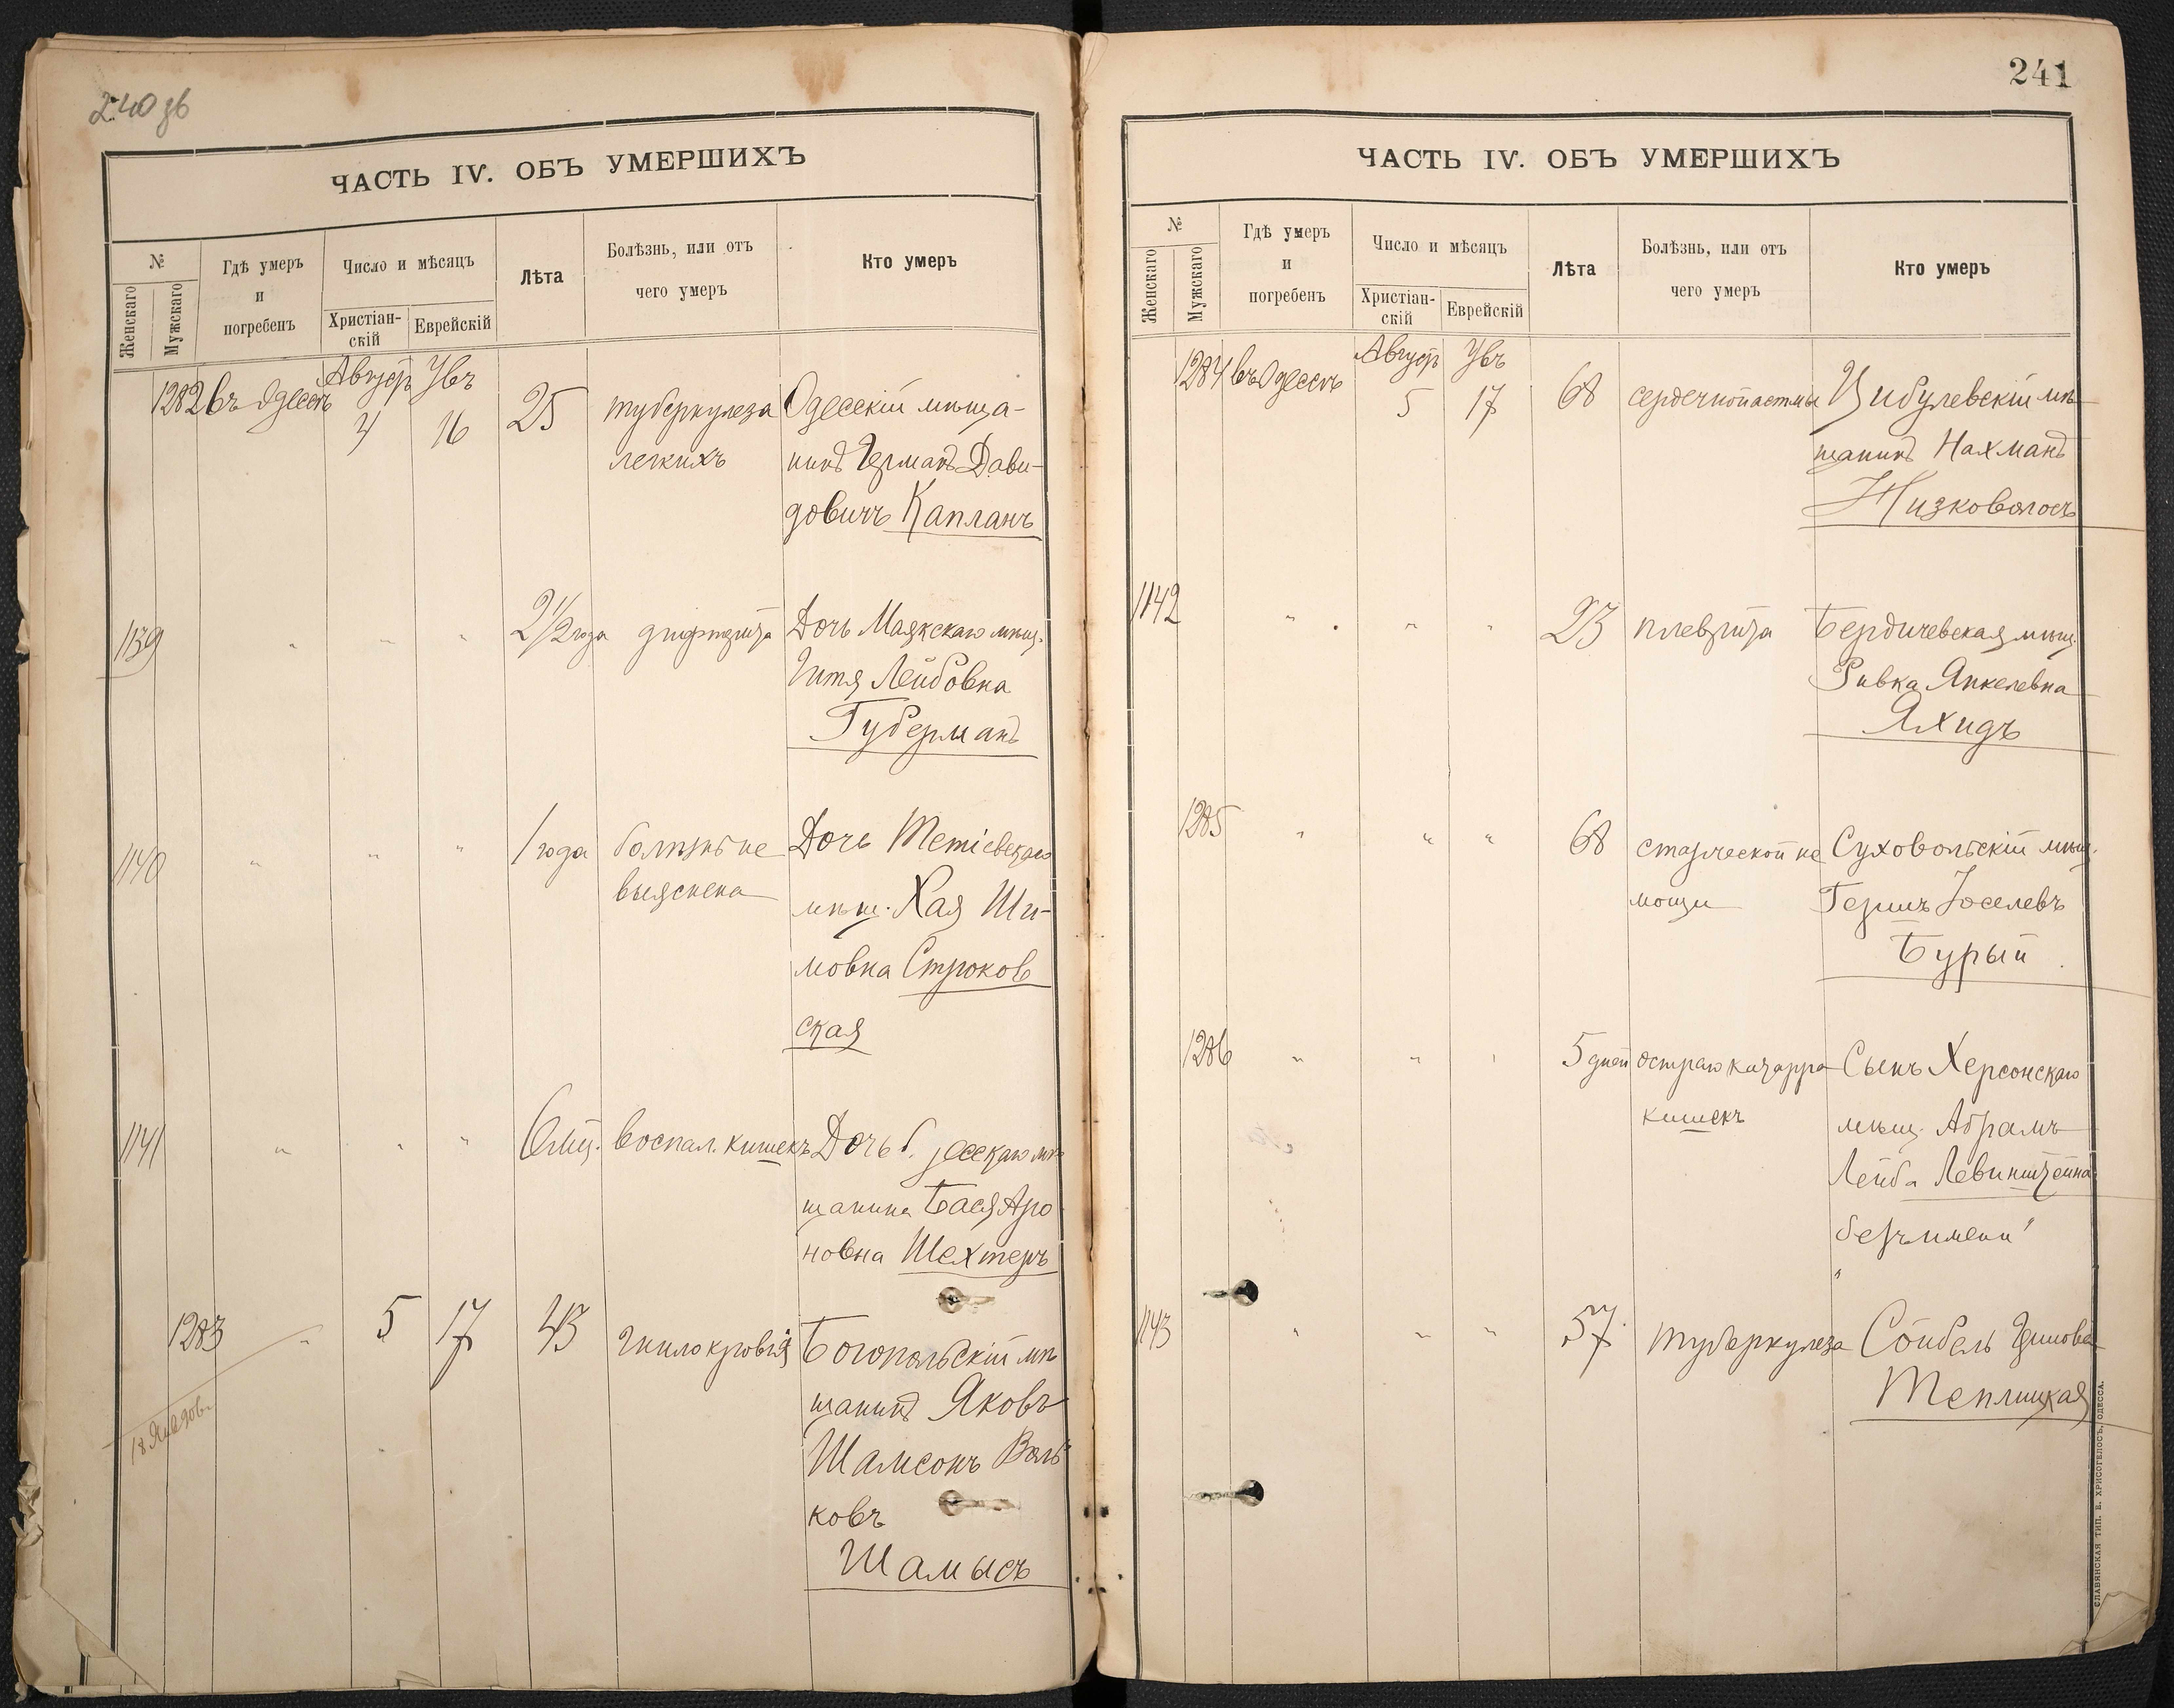 240 зв
ЧАСТЬ IV. ОБЪ УМЕРШИХЪ
№
Женскаго
Мужскаго
Гдѣ умеръ
и
погребенъ
Число и мѣсяцъ
Христіан-
скій
Еврейскій
Лѣта
Болѣзнь, или отъ
чего умеръ
Кто умеръ
1282 въ Одессѣ Август 4 Увъ 16 25 туберкулеза Одесскій мѣща-
легкихъ нинъ Германъ Дави-
довичъ Капланъ
1139 " " " 2 1/2 года дифтерита Дочь Маякскаго мѣщ.
Гитя Лейбовна
Губерманъ
1140 " " " 1 года болѣзнь не Дочь Тетіевскаго
выяснена мѣщ. Хая Ши-
мовна Строков
ская
1141 " " " 6 мѣс. воспал. кишекъ Дочь мѣ
щанина Бася Аро
новна Шехтеръ
1283 " 5 17 43 гнилокровія Богопольскій мѣ
щанинъ Яковъ
Шамсонъ Воль
ковъ
Шамысъ
241
ЧАСТЬ IV. ОБЪ УМЕРШИХЪ
№
Женскаго
Мужскаго
Гдѣ умеръ
и
погребенъ
Число и мѣсяцъ
Христіан-
скій
Еврейскій
Лѣта
Болѣзнь, или отъ
чего умеръ
Кто умеръ
1284 въ Одессѣ Август 5 Увъ 17 68 сердечной астмы Цибулевскій мѣ
щанинъ Нахманъ
Низковолосъ
1142 " " " 23 плеврита Бердичевская мѣщ.
Ривка Янкелевна
Яхидъ
1285 " " " 68 старческой не Суховольскій мѣщ.
мощи Гершъ Іоселевъ
Бурый
1286 " " " 5 дней остраго катарра Сынъ Херсонскаго
кишекъ мѣщ. Абрамъ
Лейба Левинштейна
"безъ имени"
1143 " " " 57 туберкулеза Сойбель
Теплицкая
СЛАВЯНСКАЯ ТИП. Е. ХРИСОГЕЛОСЪ, ОДЕССА.